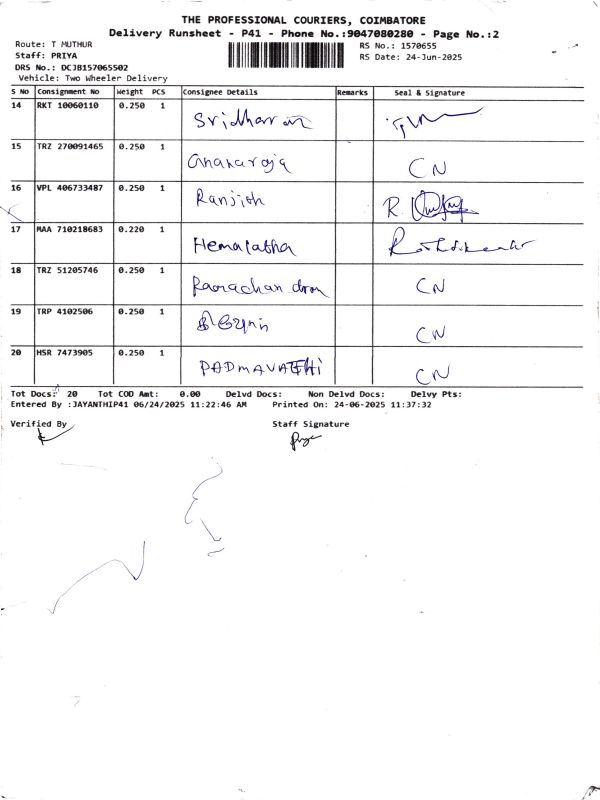 THE PROFESSIONAL COURIERS, COIMBATORE
Delivery Runsheet - P41 - Phone No.:9047080280 - Page No.:2
Route: T MUTHUR
Staff: PRIYA
DRS No.: DCJB157065502
Vehicle: Two Wheeler Delivery
RS No.: 1570655
RS Date: 24-Jun-2025
S No Consignment No Weight PCS Consignee Details Remarks Seal & Signature
14 RKT 10060110 0.250 1 Sridharran
15 TRZ 270091465 0.250 1 CN
16 VPL 406733487 0.250 1 Ranjith R.
17 MAA 710218683 0.220 1 Hemalatha
18 TRZ 51205746 0.250 1 Ramachandran CN
19 TRP 4102506 0.250 1 CN
20 HSR 7473905 0.250 1 PADMAVATHI CN
Tot Docs: 20 Tot COD Amt: 0.00 Delvd Docs: Non Delvd Docs: Delvy Pts:
Entered By :JAYANTHIP41 06/24/2025 11:22:46 AM Printed On: 24-06-2025 11:37:32
Verified By Staff Signature
Priya